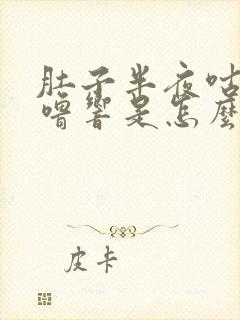 肚子半夜咕
噜響是怎麼
皮卡